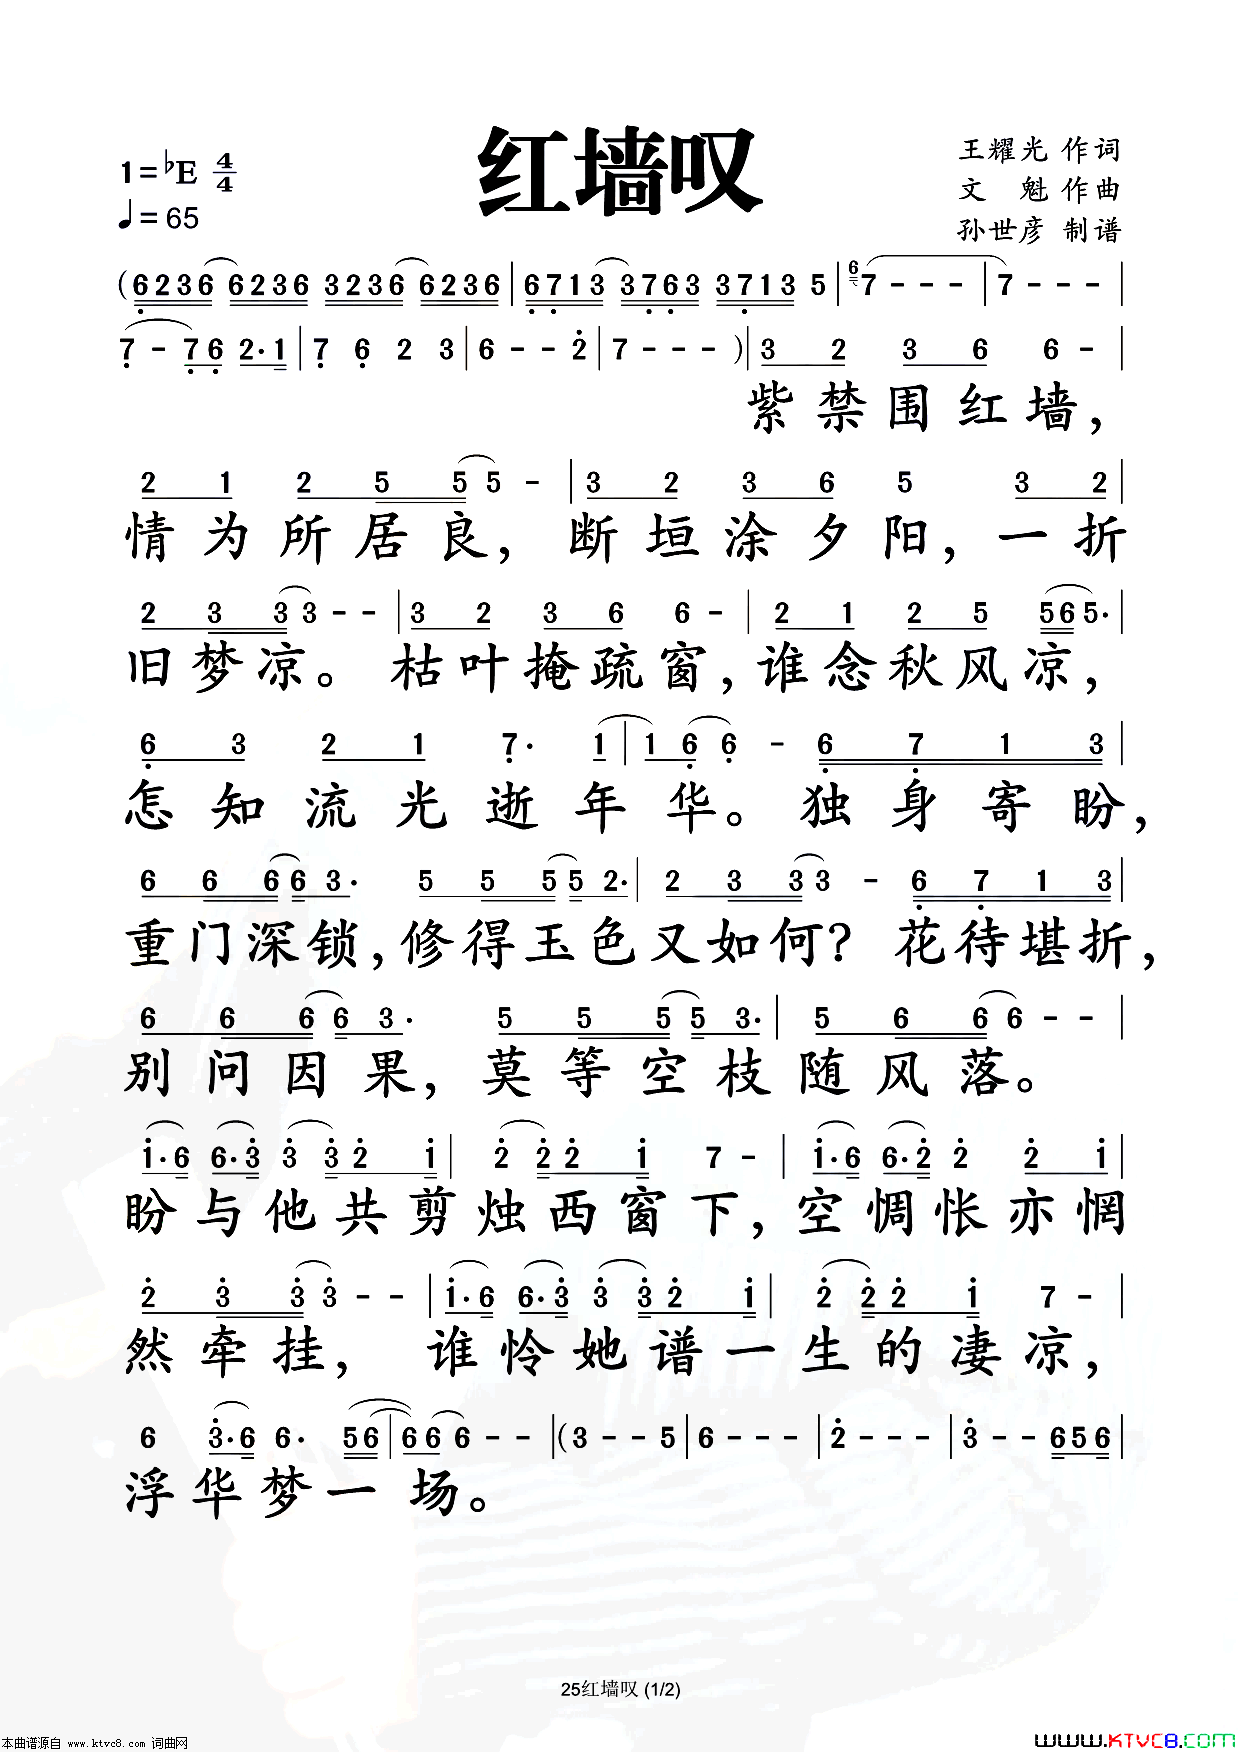 红墙叹
1=♭E 4/4
♩=65
王耀光 作词
文 魁 作曲
孙世彦 制谱
(6236 6236 3236 6236|6713 3763 3713 5|6 7 - - -|7 - - -|
7 - 76 2·1|7 6 2 3|6 - - 2|7 - - -)|3 2 3 6 6 -|
紫禁围红墙,
2 1 2 5 5 5 -|3 2 3 6 5 3 2|
情为所居良,断垣涂夕阳,一折
2 3 3 3 - -|3 2 3 6 6 -|2 1 2 5 565·|
旧梦凉。枯叶掩疏窗,谁念秋风凉,
6 3 2 1 7· 1|1 6 6 - 6 7 1 3|
怎知流光逝年华。独身寄盼,
6 6 6 6 3· 5 5 5 5 2·|2 3 3 3 - 6 7 1 3|
重门深锁,修得玉色又如何?花待堪折,
6 6 6 6 3· 5 5 5 5 3·|5 6 6 6 - -|
别问因果,莫等空枝随风落。
1·6 6·3 3 3 2 1|2 2 2 1 7 -|1·6 6·2 2 2 1|
盼与他共剪烛西窗下,空惆怅亦惘
2 3 3 3 - -|1·6 6·3 3 3 2 1|2 2 2 1 7 -|
然牵挂,谁怜她谱一生的凄凉,
6 3·6 6· 56|6 6 6 - -|(3 - - 5|6 - - -|2 - - -|3 - - 656|
浮华梦一场。
25红墙叹 (1/2)
本曲谱源自 www.ktvc8.com 词曲网
www.KTVC8.com